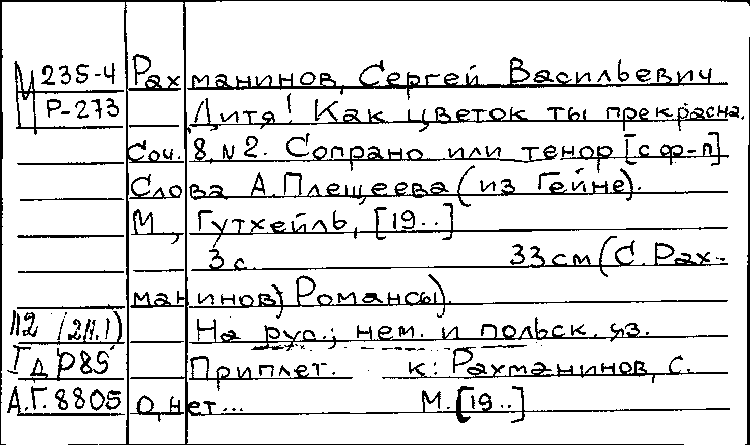 М 235-4 Рахманинов, Сергей Васильевич
Р-273 Дитя! Как цветок ты прекрасна.
Соч. 8, №2. Сопрано или тенор [с ф-п]
Слова А. Плещеева (из Гейне).
М, Гутхейль, [19..]
3 с. 33 см (С. Рах-
манинов) Романсы).
На рус.; нем. и польск. яз.
Приплет. к: Рахманинов, С.
А.Г. 8805 О, нет... М. [19..]